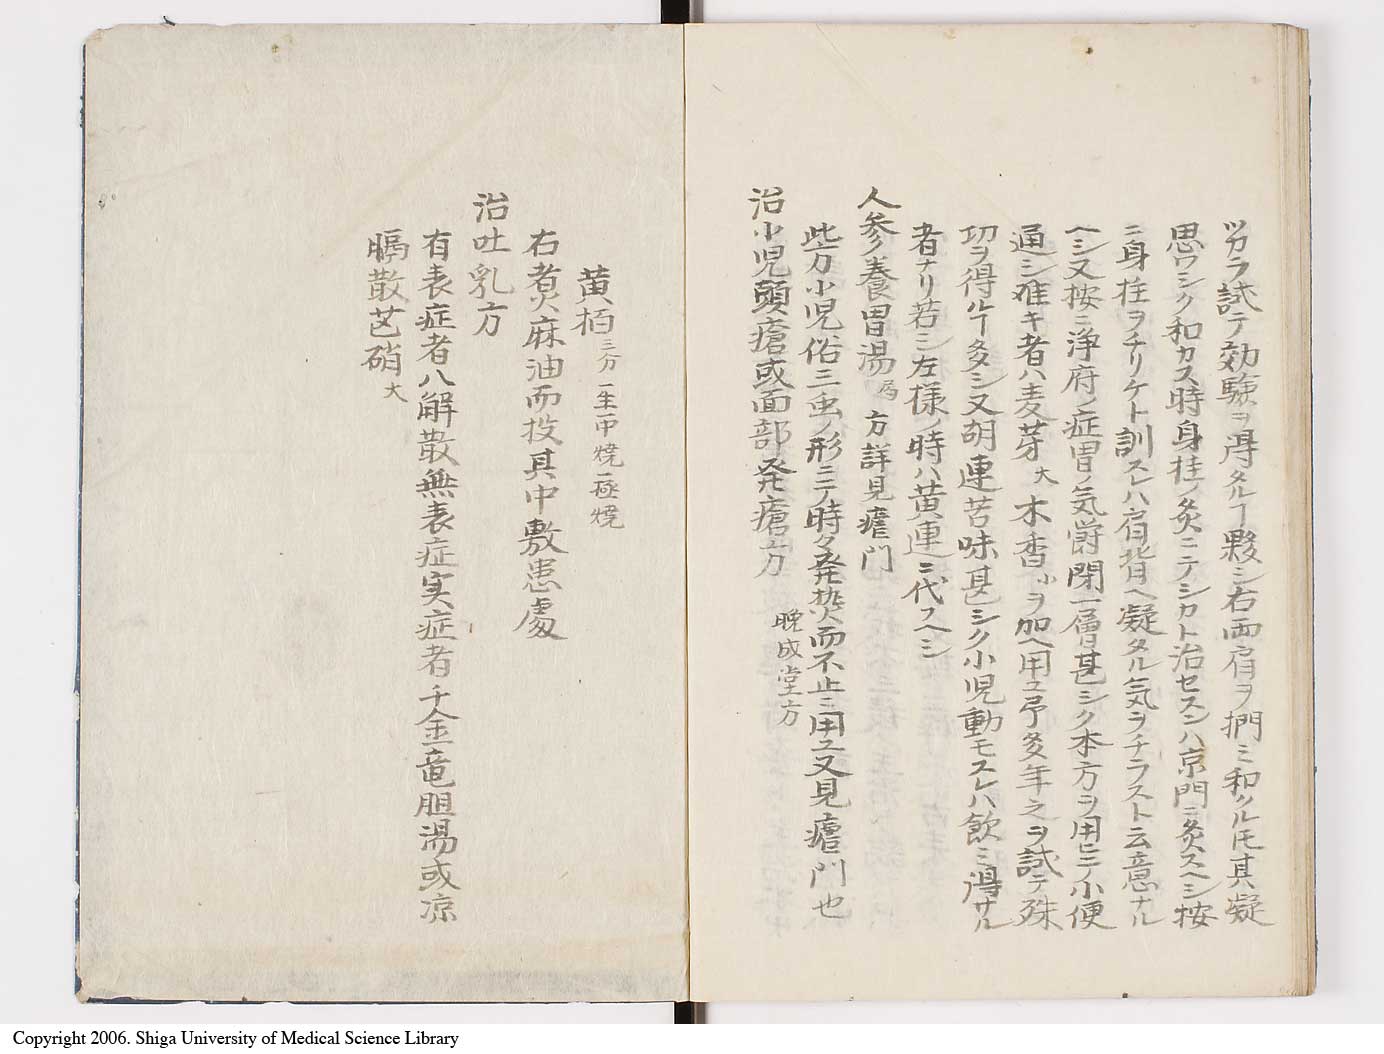 ツカラ試テ効験ヲ得タルヿ夥シ右両肩ヲ捫ミ和クルモ其凝
思ワシク和カス時身柱ノ灸ニテシカト治セスンハ京門ニ灸スヘシ按
ニ身柱ヲチリケト訓スレハ肩背ヘ凝タル気ヲチラスト云意ナル
ヘシ又按ニ浄府ノ症胃ノ気欝閉一層甚シク本方ヲ用ヒニノ小便
通シ難キ者ハ麦芽大木香小ヲ加ヘ用ユ予多年之ヲ試テ殊
功ヲ得ルヿ多シ又胡連苦味甚シク小児動モスレハ飲ミ得サル
者ナリ若シ左様ノ時ハ黄連ニ代スヘシ
人参養胃湯局方詳見瘧門
此方小児俗三虫ノ形ミテ時々発熱而不止ニ用ユ又見瘧門也
治小児頭瘡或面部発瘡方 晩成堂方
黄栢三分一生一中焼極焼
右煮麻油而投其中敷患處
治吐乳方
有表症者八解散無表症実症者千金竜胆湯或凉
膈散芒硝大
Copyright 2006. Shiga University of Medical Science Library